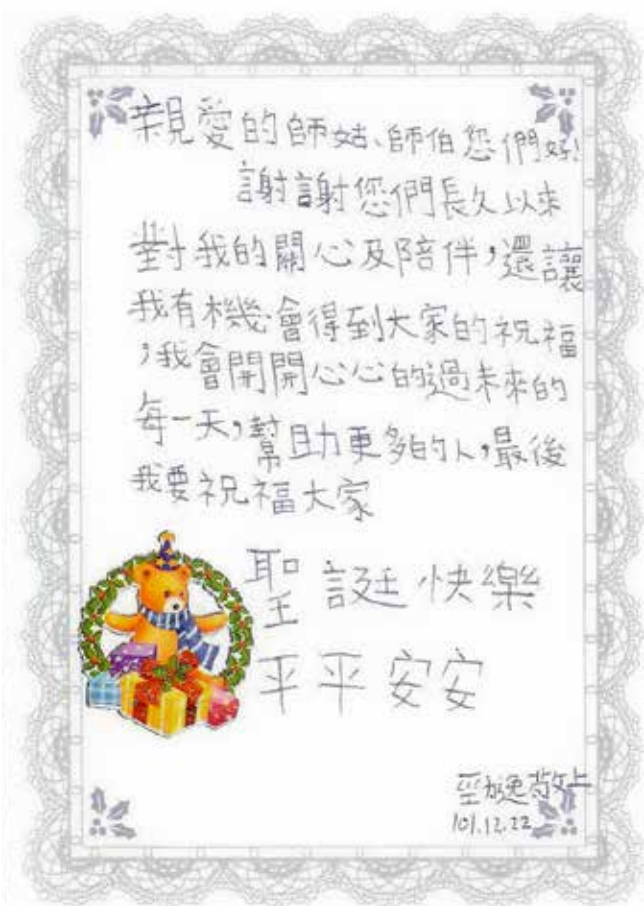 親愛的師姑、師伯您們好!
謝謝您們長久以來
對我的關心及陪伴,還讓
我有機會得到大家的祝福
,我會開開心心的過未來的
每一天,幫助更多的人,最後
我要祝福大家
聖誕快樂
平平安安
敬上
101.12.22